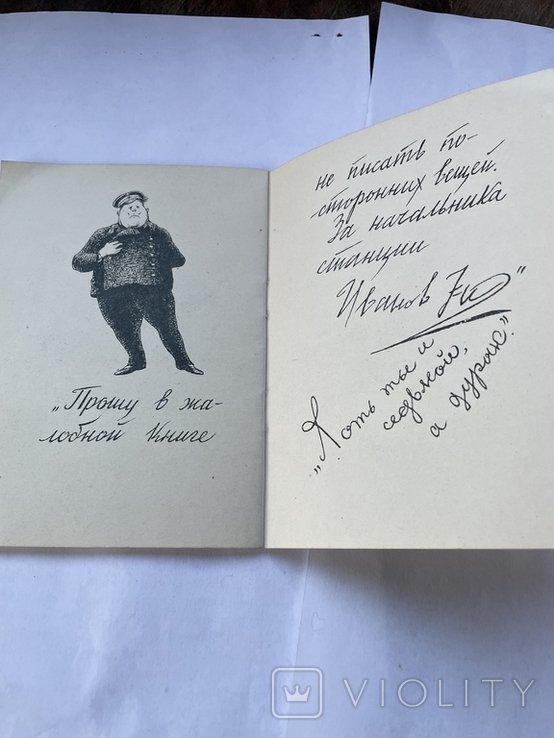 „Прошу в жа-
лобной книге
не писать по-
сторонних вещей.
За начальника
станции
Иванов 7й"
„Хоть ты и
седьмой,
а дурак."
VIOLITY